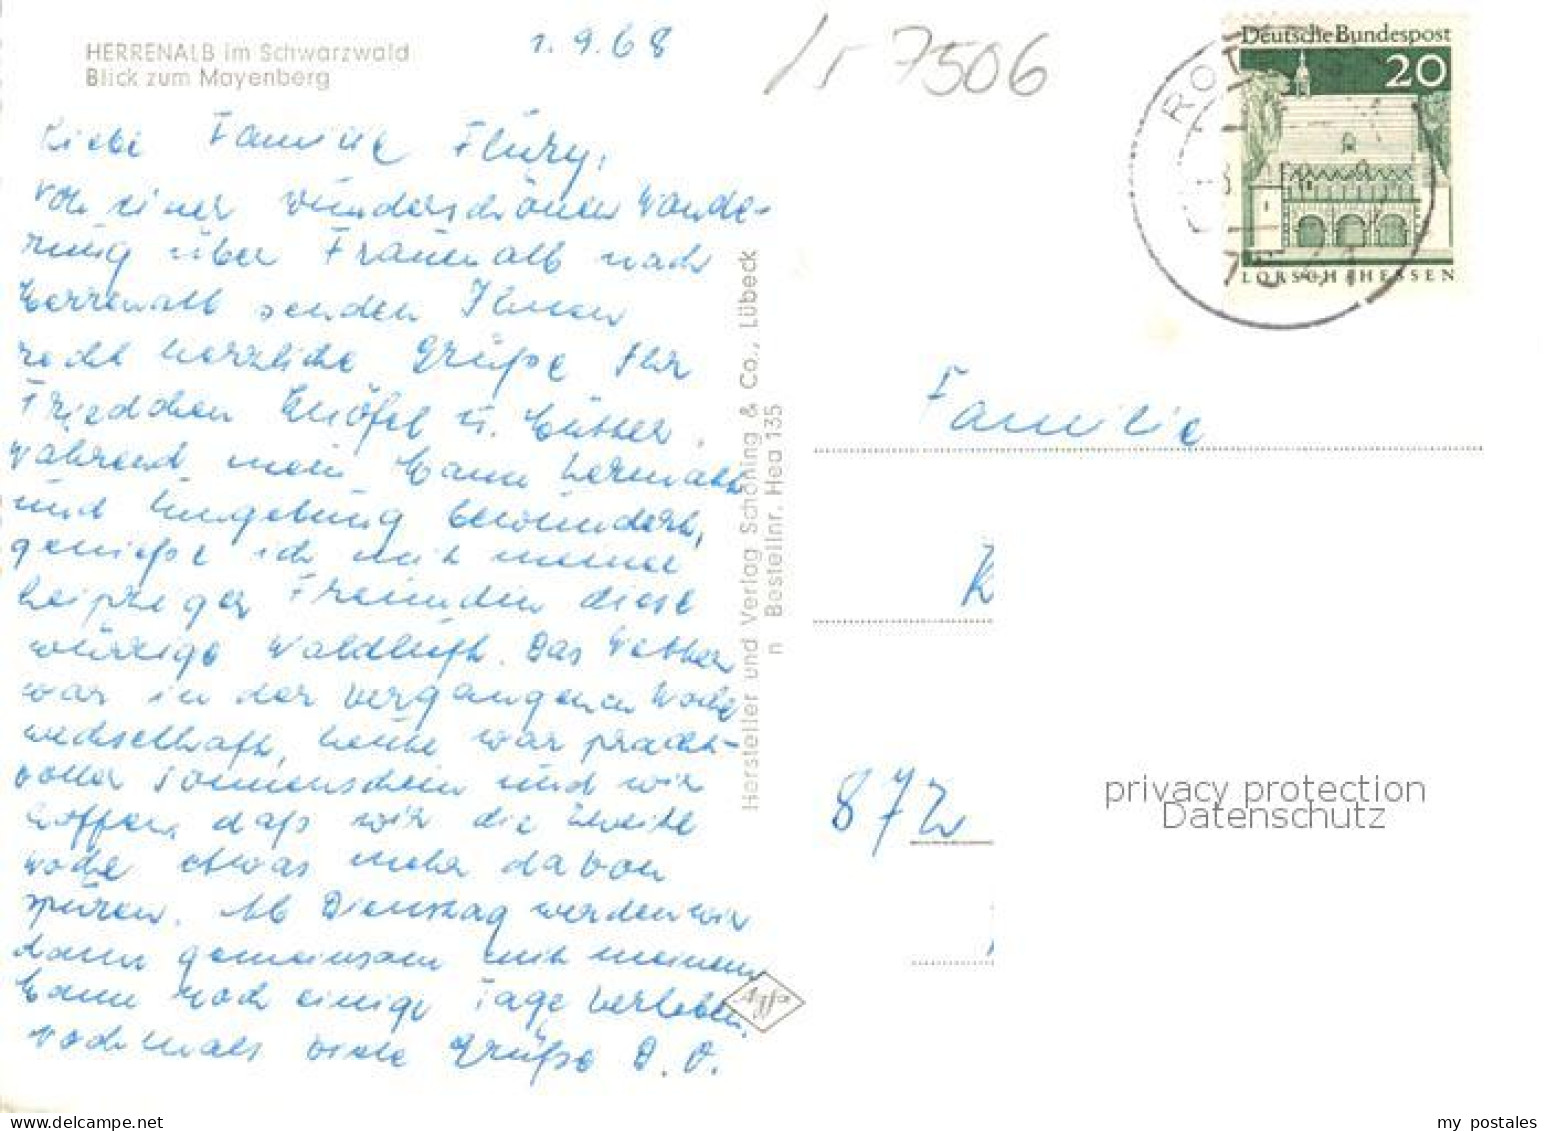 HERRENALB im Schwarzwald
Blick zum Mayenberg
1.9.68
7506
Deutsche Bundespost
20
LORSCH HESSEN
Liebe Familie Flury,
von einer wunderschönen Wande-
rung über Frauenalb nach
Herrenalb senden Ihnen
recht herzliche Grüße Ihr
Friedchen u. Mutter.
Während mein Mann Herrenalb
und Umgebung bewundert,
genieße ich mit meiner
Leipziger Freundin diese
würzige Waldluft. Das Wetter
war in der vergangenen Woche
wechselhaft, heute war pracht-
voller Sonnenschein und wir
hoffen, daß wir die zweite
Woche etwas mehr davon
spüren. Ab Dienstag werden wir
dann gemeinsam mit meinem
Mann noch einige Tage verleben.
Nochmals viele Grüße D. O.
Hersteller und Verlag Schöning & Co., Lübeck
n Bestellnr. Hea 135
Agfa
Familie
K
872
privacy protection
Datenschutz
my postales